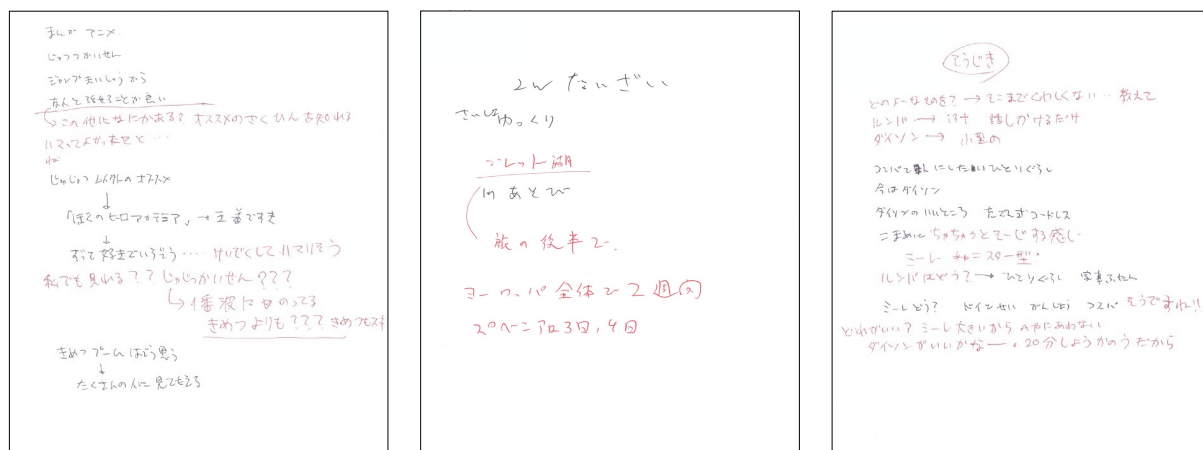 まんが アニメ
じゅつかいせん
ジャンプ から
なんと ことが良い
この他になにかある? オススメのさくひんを知れる
ハマってよかったせと…
ね
じゅじゅつ以外のオススメ
↓
「ぼくのヒーローアカデミア」→王道ですき
↓
ずっと好きでいろそう…… してハマりそう
私でも見れる?? じゅじゅつかいせん???
↳ 1番波にものってる
きめつよりも??? きめつもスキ
きめつブームはどう思う
↓
たくさんの人に見てもらえる
2w たいざい
さいしょ ゆっくり
ブレット湖
あそび
旅の後半で、
ヨーロッパ全体で2週間
スロベニアは3日,4日
そうじき
どのよーなものを?→そこまでくわしくない…教えて
ルンバ→ 話しかけるだけ
ダイソン→ 小型の
コンパクト にしたい ひとりぐらし
今はダイソン
ダイソンのいいところ たてえずコードレス
こまめに ちゃちゃっとそーじする感じ
ミーレ キャニスター型・
ルンバはどう?→ひとりぐらし
ミーレどう? ドイツせい がんじょう コスパ そうですね!!
どれがいい? ミーレ大きいから のやにあわない
ダイソンがいいかなー。20分しようかのうだから